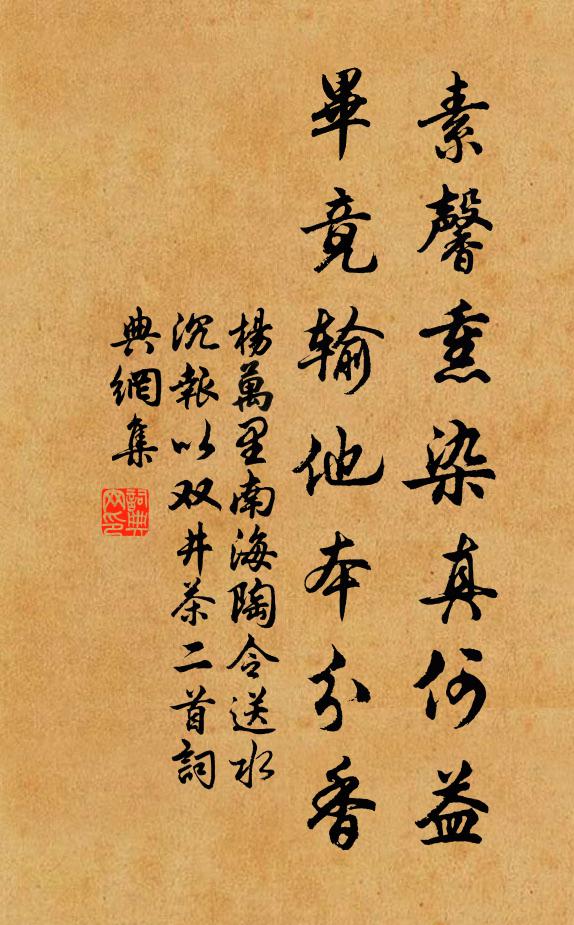 素馨熏染真何益
畢竟輸他本分香
楊萬里南海陶令送水
沉報以双井茶二首詞
典網集
詞典
网印